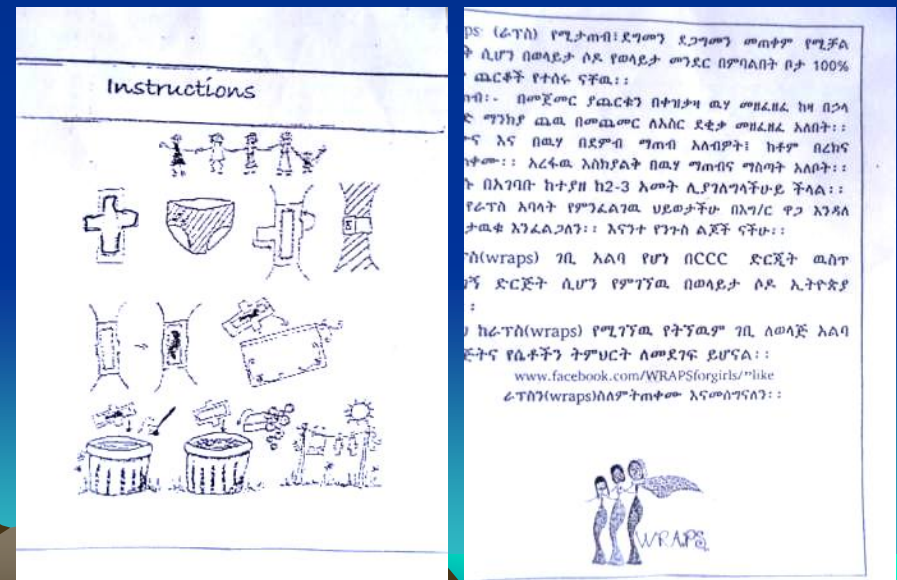 Instructions
ps (ራፕስ) የሚታጠብ፤ ደግመን ደጋግመን መጠቀም የሚቻል
ት ሲሆን በወላይታ ሶዶ የወላይታ መንደር በምባልበት ቦታ 100%
ጨርቆች የተሰሩ ናቸዉ፡፡
ጠብ፡- በመጀመር ያጨርቁን በቀዝታዛ ዉሃ መዘፈዘፈ ከዛ በኃላ
ድ ማንክያ ጨዉ በመጨመር ለአስር ደቂቃ መዘፈዘፈ አለበት፡፡
ና እና በዉሃ በደምብ ማጠብ አለብዎት፤ ከቶም በረክና
ቀሙ፡፡ አረፋዉ እስክያልቅ በዉሃ ማጠብና ማስጣት አለቦት፡፡
ኑ በአገባቡ ከተያዘ ከ2-3 አመት ሊያገለግላችሁይ ችላል፡፡
የራፕስ አባላት የምንፈልገዉ ህይወታችሁ በእግ/ር ዋጋ እንዳለ
ታዉቁ እንፈልጋለን፡፡ እናንተ የንጉስ ልጆች ናችሁ፡፡
ፕስ(wraps) ገቢ አልባ የሆነ በCCC ድርጂት ዉስጥ
ገኝ ድርጅት ሲሆን የምገኘዉ በወላይታ ሶዶ ኢትዮጵያ
፡
ከራፕስ(wraps) የሚገኘዉ የትኘዉም ገቢ ለወላጅ አልባ
ጅትና የሴቶችን ትምህርት ለመደገፍ ይሆናል፡፡
www.facebook.com/WRAPSforgirls/"like
ራፕስን(wraps)ስለምትጠቀሙ እናመሰግናለን፡፡
WRAPS